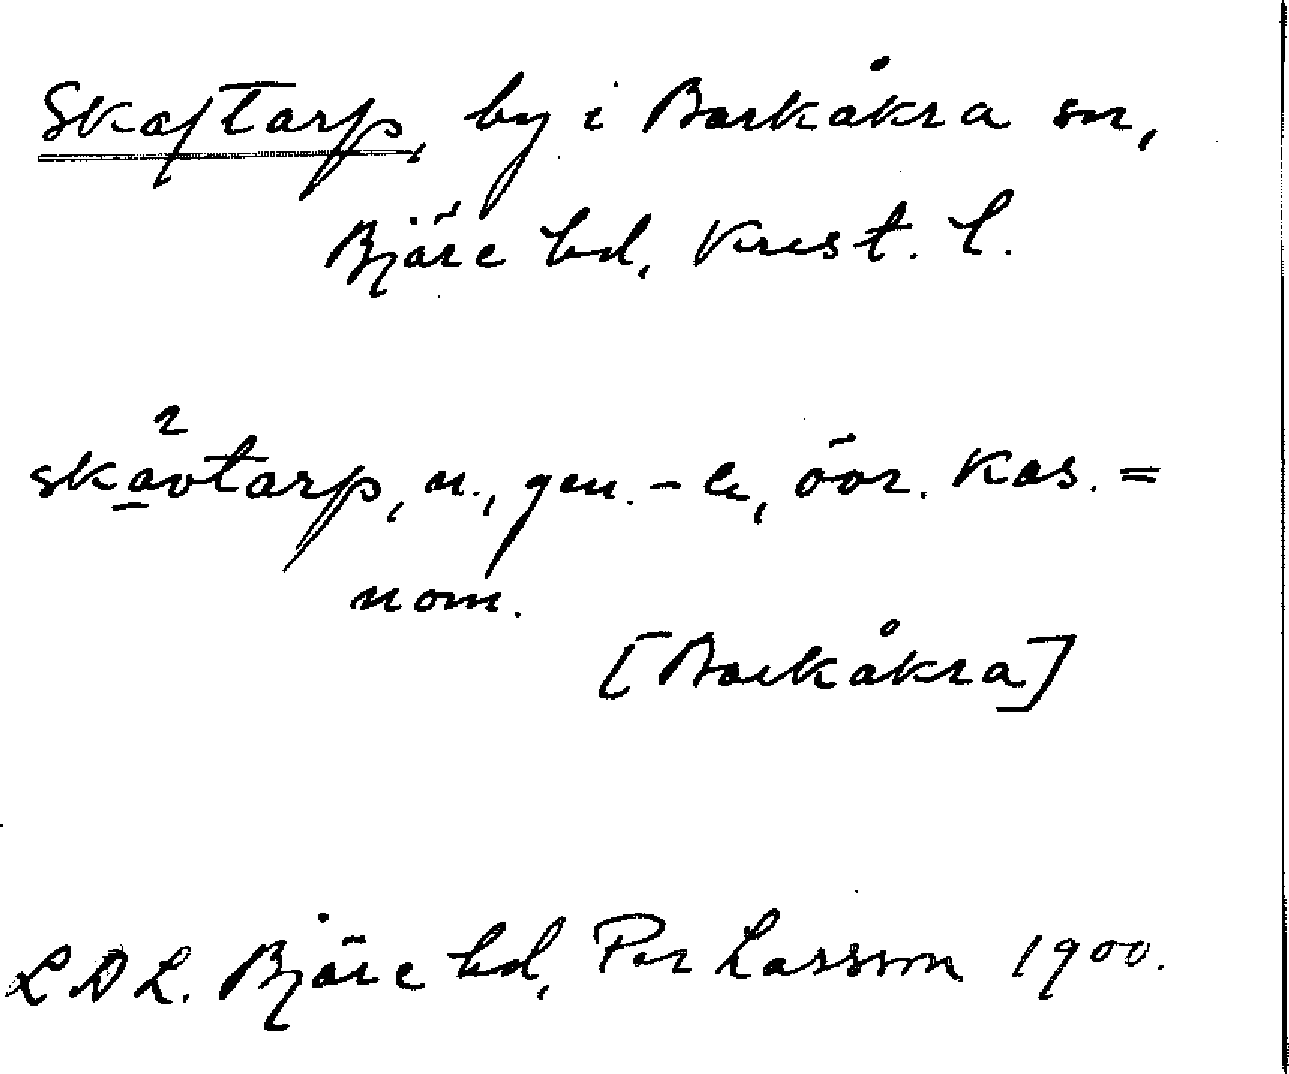 Skaftarp, by i Barkåkra sn,
Bjäre hd, Krist. l.
skavtarp, n., gen. -e, övr. kas. =
nom.
[Barkåkra]
LDL. Bjäre hd, Per Larsson 1900.